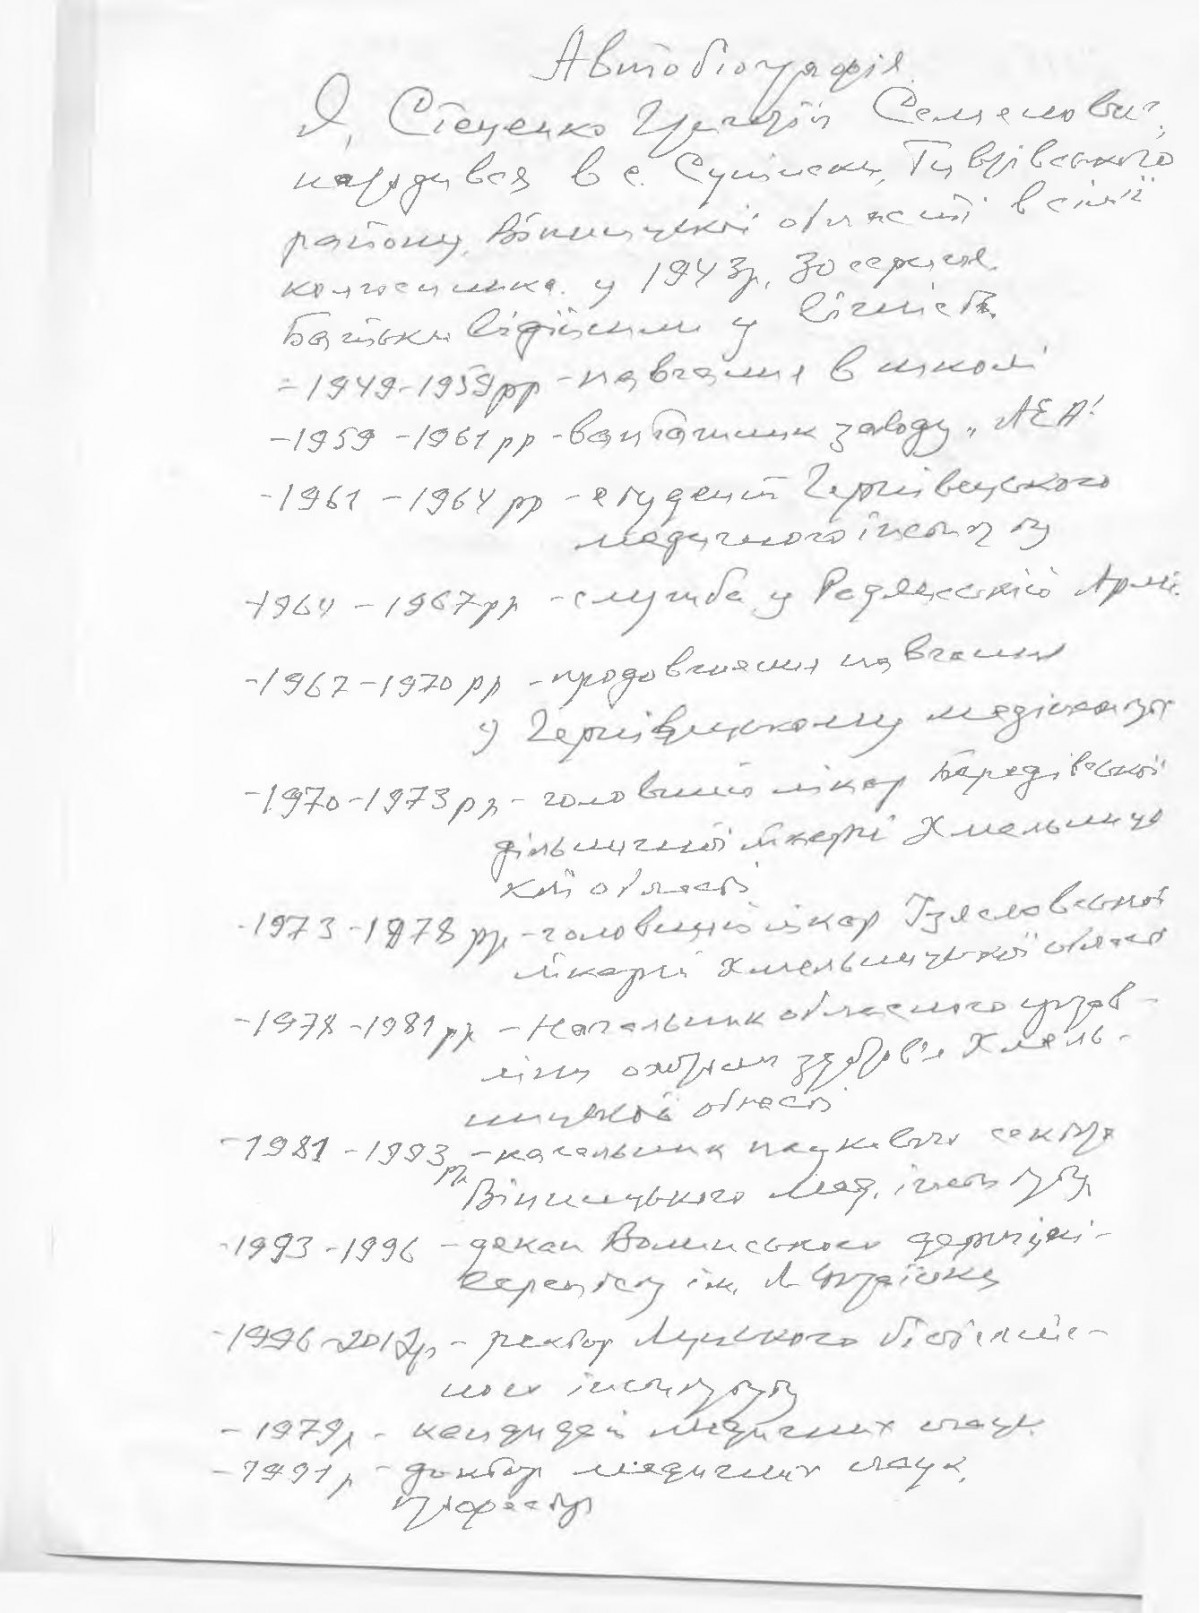 Автобіографія.
Я, Степенко Григорій Семенович,
народився в с. Сутіски, Тиврівського
району, Вінницької області в сім'ї
колгоспника у 1943р, 30 серпня.
Батьки відійшли у вічність.
- 1949-1959рр - навчання в школі
- 1959 - 1961 рр - вантажник заводу
- 1961 - 1964 рр - студент Чернівецького
медичного інституту
- 1964 - 1967рр. - служба у Радянській Армії.
- 1967 - 1970 рр - продовження навчання
у Чернівецькому медінституті
- 1970 - 1973 рр - головний лікар
дільничної лікарні Хмельниць
кої області
- 1973 - 1978 рр. - головний лікар Ізяславської
лікарні Хмельницької області
- 1978 - 1981 рр. - Начальник обласного управ-
ління охорони здоров'я Хмель-
ницької області
- 1981 - 1993 рр. - начальник наукового сектора
Вінницького Мед. інституту
- 1993 - 1996 - декан Волинського держуні-
верситету ім. Л. Українки
- 1996-2012р. - ректор Луцького біотехніч-
ного інституту
- 1979р. - кандидат медичних наук.
- 1991 р - доктор медичних наук,
професор